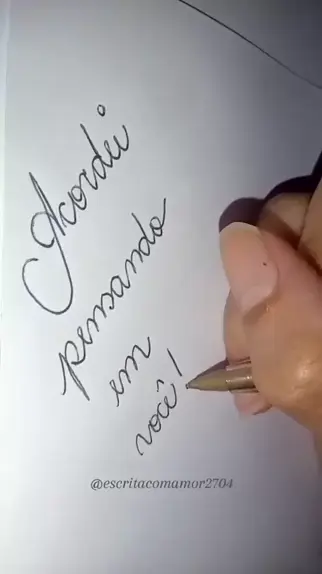 Acordei
pensando
em
você!
@escritacomamor2704